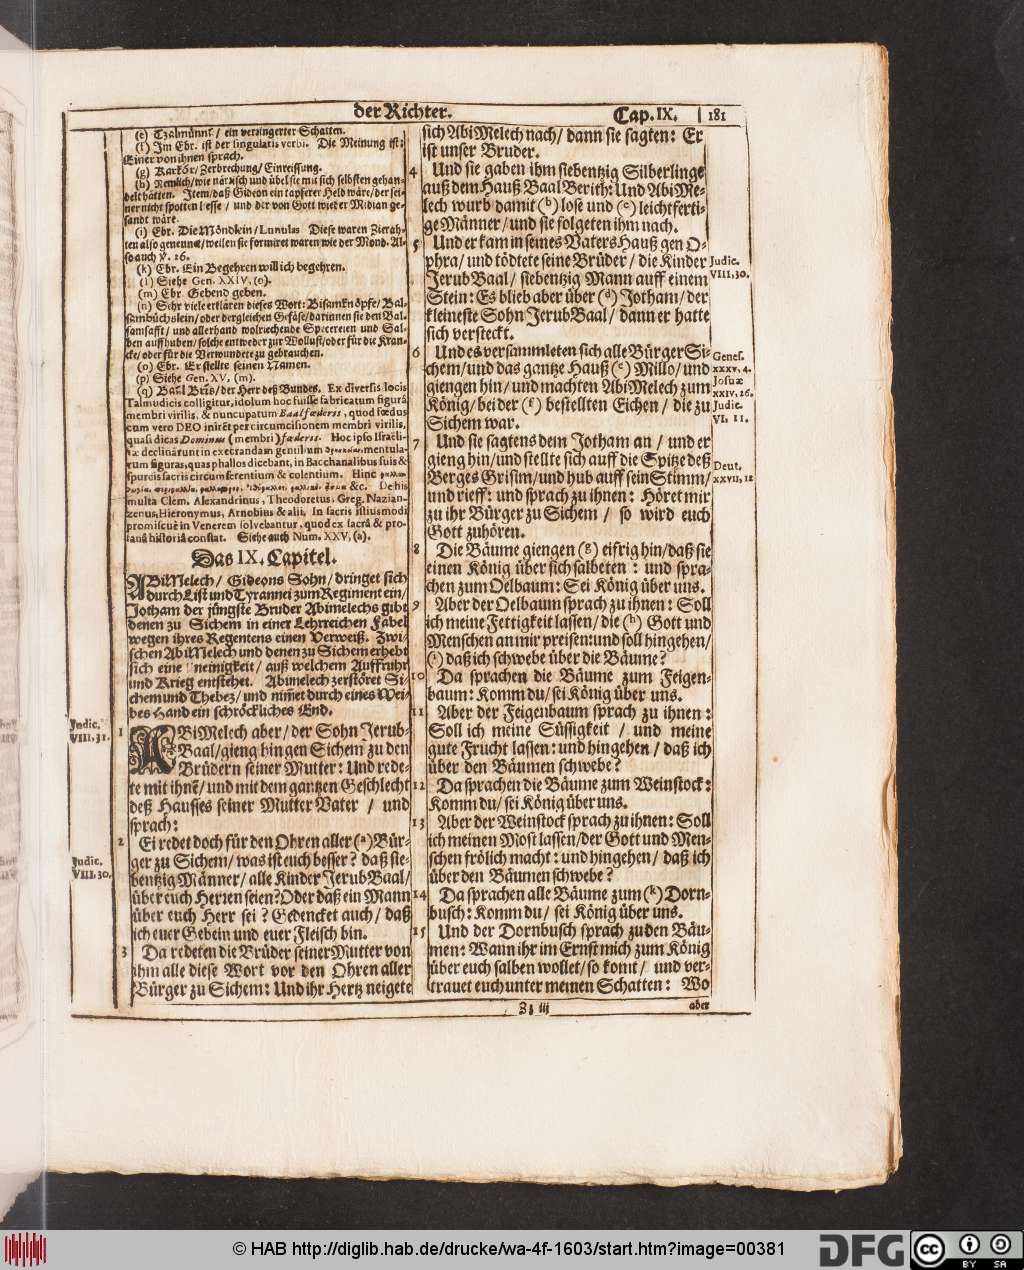 der Richter. Cap. IX. 181
(e) Tzalmunna / ein verringerter Schatten.
(f) Im Ebr. ist der singularis verbi. Die Meinung ist:
Einer von ihnen sprach.
(g) Karkor / Zerbrechung / Einreissung.
(h) Nemlich / wie närrisch und übel sie mit sich selbsten gehan-
delt hätten. Item / daß Gideon ein tapferer Held wäre / der sei-
ner nicht spotten liesse / und der von Gott wieder Midian ge-
sandt wäre.
(i) Ebr. Die Möndlein / Lunulas Diese waren Zierah-
ten also genennet / weilen sie formiret waren wie der Mond. Al-
so auch v. 26.
(k) Ebr. Ein Begehren will ich begehren.
(l) Siehe Gen. XXIV, (o).
(m) Ebr. Gebend geben.
(n) Sehr viele erklären dieses Wort: Bisamknöpfe / Bal-
sambüchslein / oder dergleichen Gefäse / darinnen sie den Bal-
samsafft / und allerhand wolriechende Specereien und Sal-
ben auffhuben / solche entweder zur Wollust / oder für die Kran-
cke / oder für die Verwundete zu gebrauchen.
(o) Ebr. Er stellte seinen Namen.
(p) Siehe Gen. XV, (m).
(q) Baal Bris / der Herr deß Bundes. Ex diversis locis
Talmudicis colligitur, idolum hoc fuisse fabricatum figurâ
membri virilis, & nuncupatum Baal fœderis, quod fœdus
cum vero DEO iniret per circumcisionem membri virilis,
quasi dicas Dominus (membri) fœderis. Hoc ipso Israeli-
tæ declinârunt in execrandam gentilium mentula-
rum figuras, quas phallos dicebant, in Bacchanalibus suis &
spurcis sacris circumferentium & colentium. Hinc
&c. De his
multa Clem. Alexandrinus, Theodoretus, Greg. Nazian-
zenus, Hieronymus, Arnobius & alii. In sacris istiusmodi
promiscuè in Venerem solvebantur, quod ex sacrâ & pro-
fanâ historiâ constat. Siehe auch Num. XXV, (a).
Das IX. Capitel.
ABiMelech / Gideons Sohn / dringet sich
durch List und Tyrannei zum Regiment ein /
Jotham der jüngste Bruder Abimelechs gibt
denen zu Sichem in einer Lehrreichen Fabel
wegen ihres Regentens einen Verweiß. Zwi-
schen AbiMelech und denen zu Sichem erhebt
sich eine Uneinigkeit / auß welchem Auffruhr
und Krieg entstehet. Abimelech zerstöret Si-
chem und Thebez / und nim̃et durch eines Wei-
bes Hand ein schröckliches End.
Judic.
VIII, 31.
1 ABiMelech aber / der Sohn Jerub-
Baal / gieng hin gen Sichem zu den
Brüdern seiner Mutter: Und rede-
te mit ihnẽ / und mit dem gantzen Geschlecht
deß Hausses seiner Mutter Vater / und
sprach:
2 Ei redet doch für den Ohren aller (a) Bür-
ger zu Sichem / was ist euch besser? daß sie-
Judic.
VIII, 30.
bentzig Männer / alle Kinder JerubBaal /
über euch Herren seien? Oder daß ein Mann
über euch Herr sei? Gedencket auch / daß
ich euer Gebein und euer Fleisch bin.
3 Da redeten die Brüder seiner Mutter von
ihm alle diese Wort vor den Ohren aller
Bürger zu Sichem: Und ihr Hertz neigete
sich AbiMelech nach / dann sie sagten: Er
ist unser Bruder.
4 Und sie gaben ihm siebentzig Silberlinge
auß dem Hauß Baal Berith: Und AbiMe-
lech wurb damit (b) lose und (c) leichtferti-
ge Männer / und sie folgeten ihm nach.
5 Und er kam in seines Vaters Hauß gen O-
phra / und tödtete seine Brüder / die Kinder
Judic.
VIII, 30.
JerubBaal / siebentzig Mann auff einem
Stein: Es blieb aber über (d) Jotham / der
kleineste Sohn JerubBaal / dann er hatte
sich versteckt.
6 Und es versammleten sich alle Bürger Si-
chem / und das gantze Hauß (e) Millo / und
giengen hin / und machten AbiMelech zum
König / bei der (f) bestellten Eichen / die zu
Sichem war.
Genes.
xxxv, 4.
Josuæ
xxiv, 26.
Judic.
VI, 11.
7 Und sie sagtens dem Jotham an / und er
gieng hin / und stellte sich auff die Spitze deß
Berges Grisim / und hub auff sein Stimm /
und rieff: und sprach zu ihnen: Höret mir
zu ihr Bürger zu Sichem / so wird euch
Gott zuhören.
Deut.
xxvii, 12
8 Die Bäume giengen (g) eifrig hin / daß sie
einen König über sich salbeten: und spra-
chen zum Oelbaum: Sei König über uns.
9 Aber der Oelbaum sprach zu ihnen: Soll
ich meine Fettigkeit lassen / die (h) Gott und
Menschen an mir preisen: und soll hingehen /
(i) daß ich schwebe über die Bäume?
10 Da sprachen die Bäume zum Feigen-
baum: Komm du / sei König über uns.
11 Aber der Feigenbaum sprach zu ihnen:
Soll ich meine Süssigkeit / und meine
gute Frucht lassen: und hingehen / daß ich
über den Bäumen schwebe?
12 Da sprachen die Bäume zum Weinstock:
Komm du / sei König über uns.
13 Aber der Weinstock sprach zu ihnen: Soll
ich meinen Most lassen / der Gott und Men-
schen frölich macht: und hingehen / daß ich
über den Bäumen schwebe?
14 Da sprachen alle Bäume zum (k) Dorn-
busch: Komm du / sei König über uns.
15 Und der Dornbusch sprach zu den Bäu-
men: Wann ihr im Ernst mich zum König
über euch salben wollet / so komt / und ver-
trauet euch unter meinen Schatten: Wo
Zz iij aber
© HAB http://diglib.hab.de/drucke/wa-4f-1603/start.htm?image=00381
DFG
cc BY SA